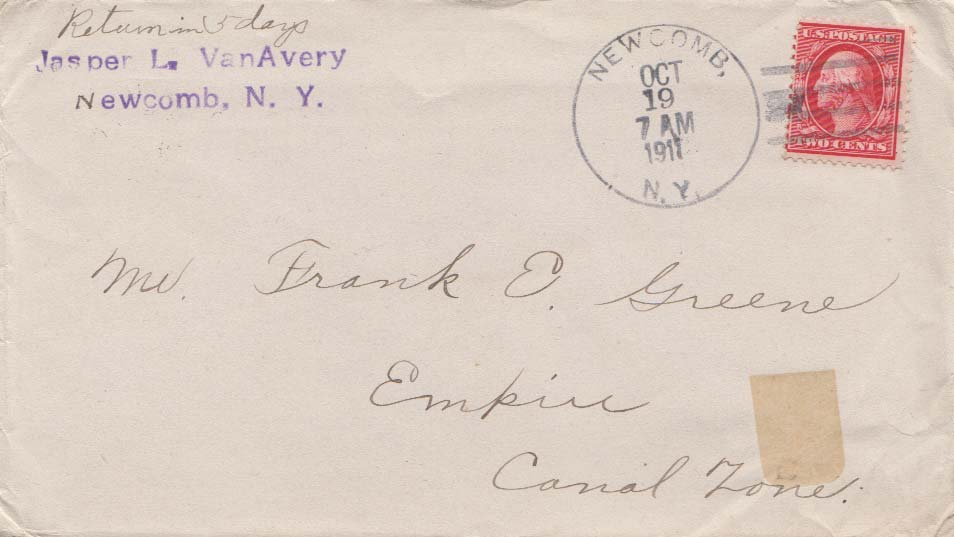 Return in 5 days
Jasper L. VanAvery
Newcomb, N. Y.
NEWCOMB,
OCT
19
7 AM
1911
N.Y.
U.S. POSTAGE
TWO CENTS
Mr. Frank E. Greene
Empire
Canal Zone.